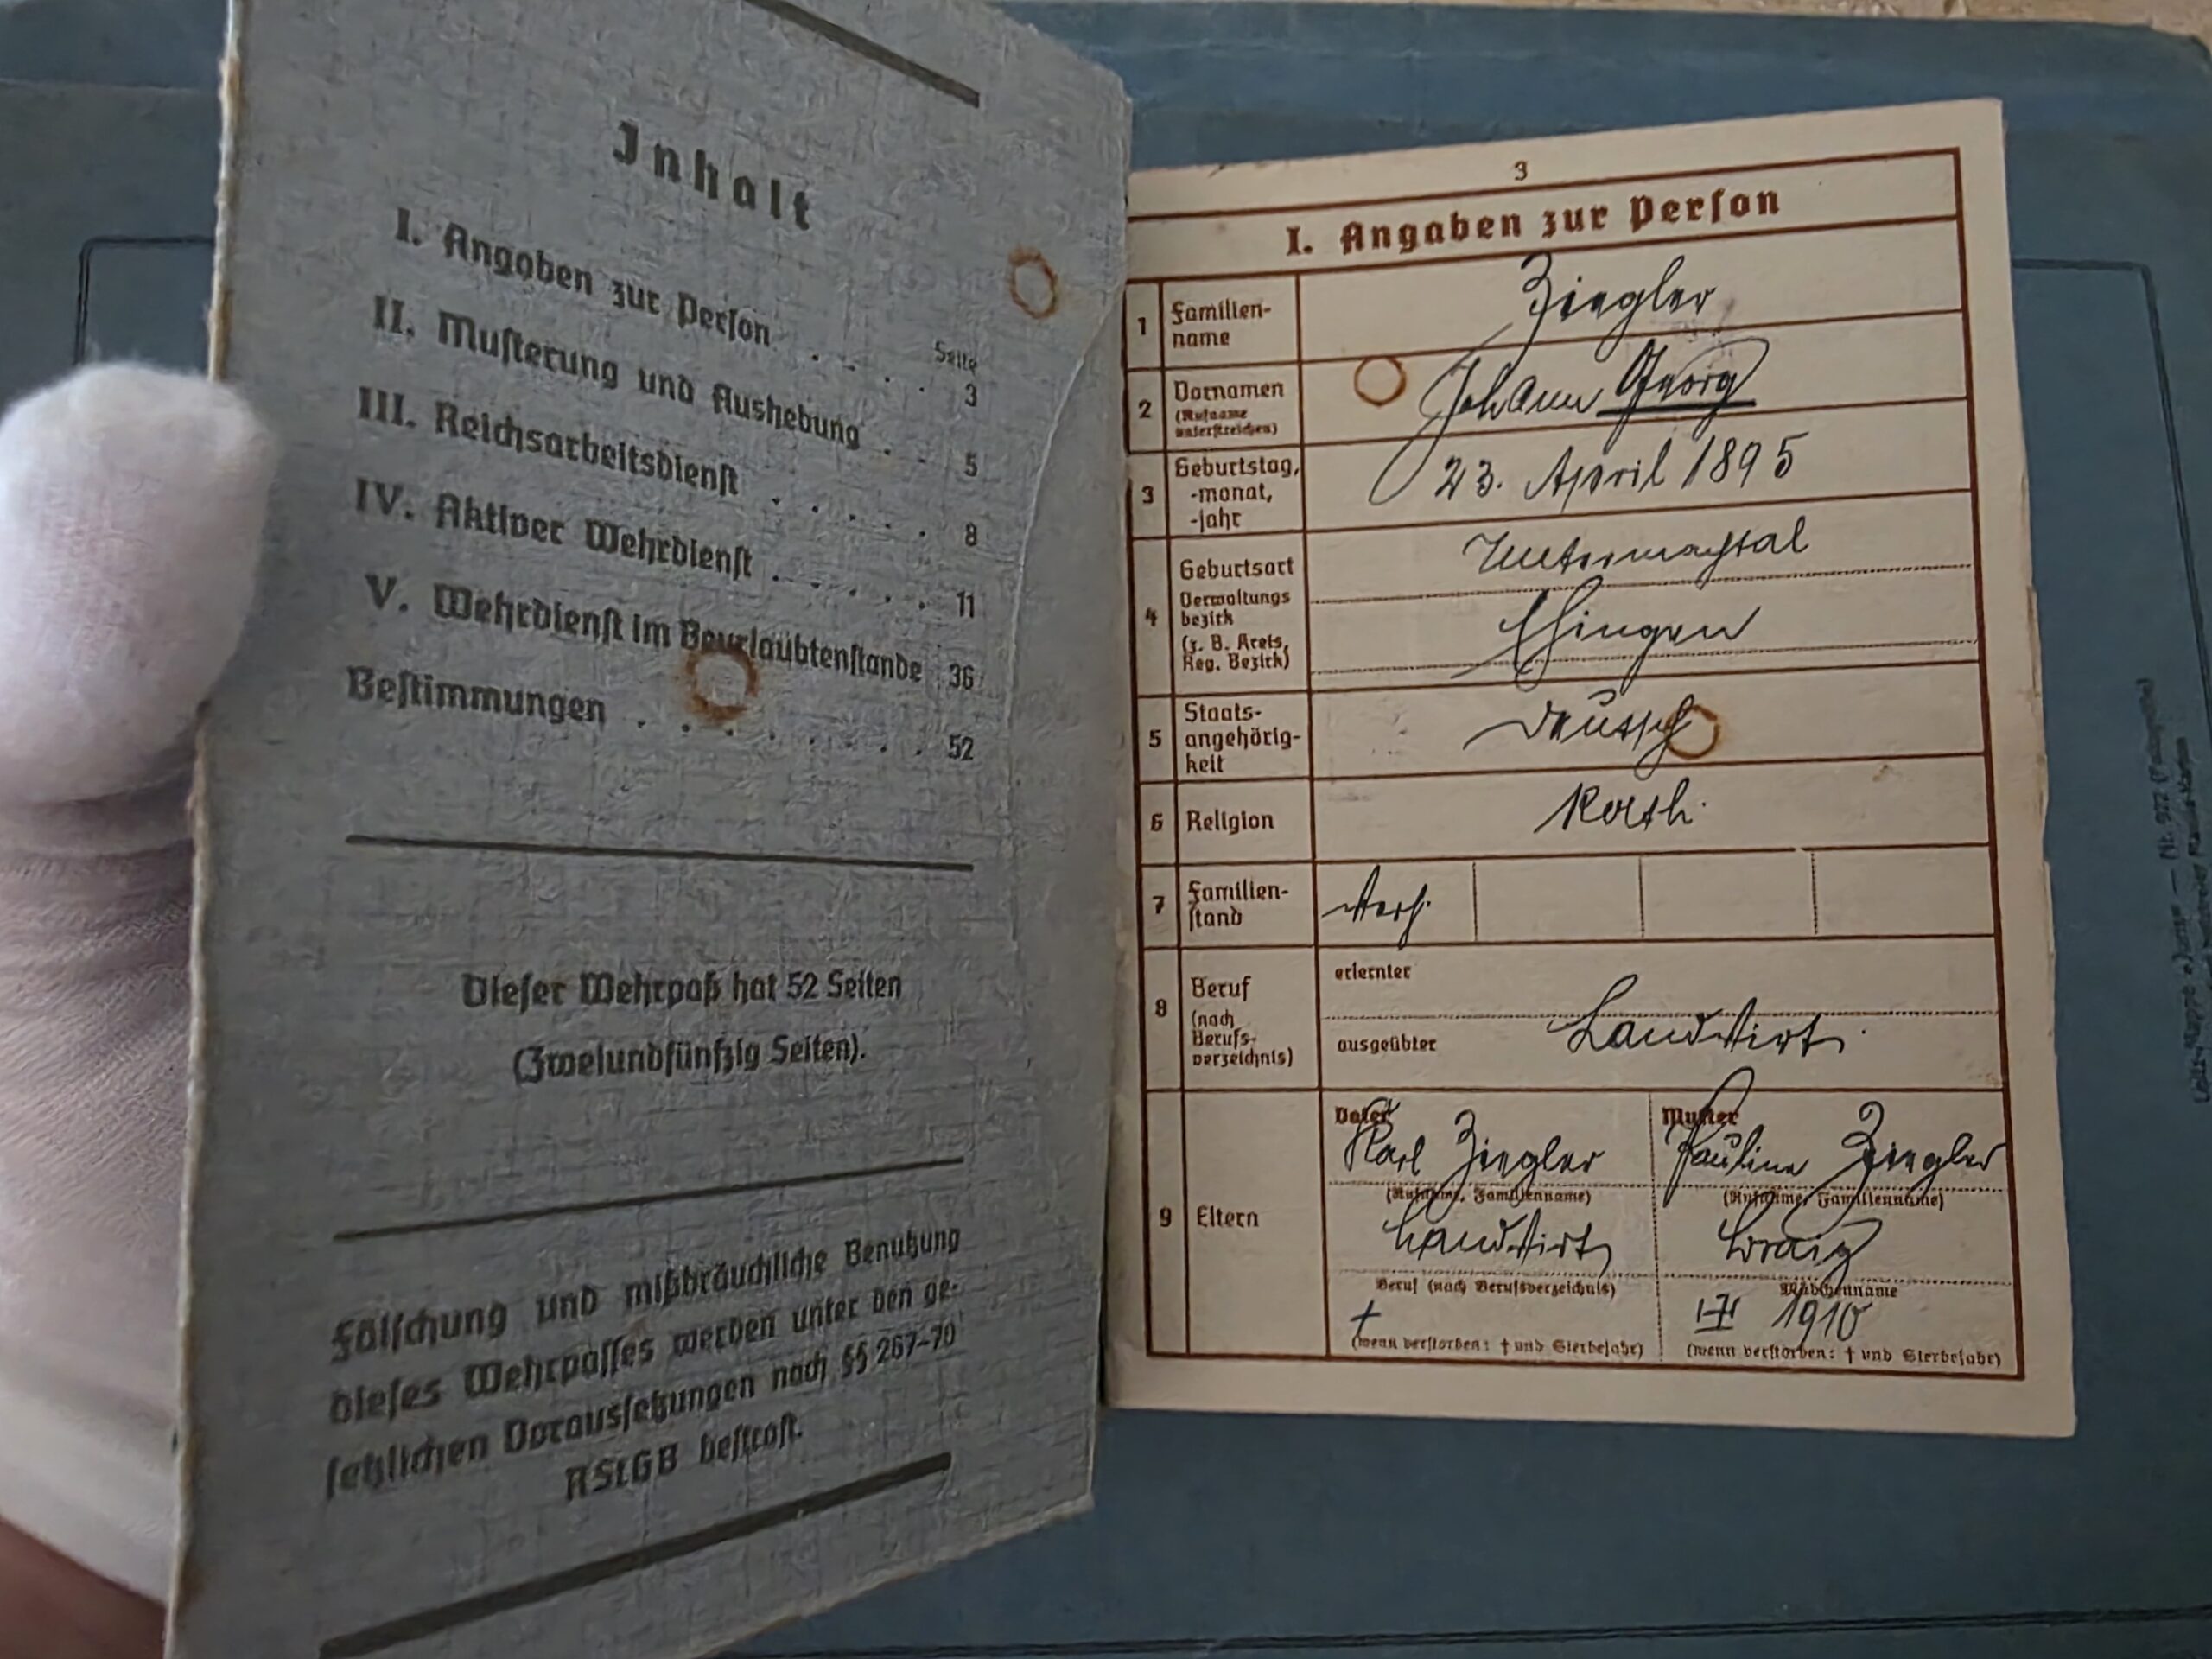 Inhalt
Seite
I. Angaben zur Person . . . . . 3
II. Muſterung und Aushebung . . 5
III. Reichsarbeitsdienſt . . . . . 8
IV. Aktiver Wehrdienſt . . . . . 11
V. Wehrdienſt im Beurlaubtenſtande 36
Beſtimmungen . . . . . . . 52
Dieſer Wehrpaß hat 52 Seiten
(Zweiundfünfzig Seiten).
Fälſchung und mißbräuchliche Benutzung
dieſes Wehrpaſſes werden unter den ge-
ſetzlichen Vorausſetzungen nach §§ 267-70
RStGB beſtraft.
3
I. Angaben zur Perſon
1 Familien-
name
Ziegler
2 Vornamen
(Rufname
unterſtreichen)
Johann Georg
3 Geburtstag,
-monat,
-jahr
23. April 1895
4 Geburtsort
Untermachtal
Verwaltungs
bezirk
(z. B. Kreis,
Reg. Bezirk)
Ehingen
5 Staats-
angehörig-
keit
Deutsch
6 Religion
Kath.
7 Familien-
ſtand
Verh.
8 Beruf
(nach
Berufs-
verzeichnis)
erlernter
ausgeübter
Landwirt
9 Eltern
Vater
Karl Ziegler
(Rufname, Familienname)
Landwirt
Beruf (nach Berufsverzeichnis)
†
(wenn verſtorben: † und Sterbejahr)
Mutter
Pauline Ziegler
(Rufname, Familienname)
Mädchenname
1910
(wenn verſtorben: † und Sterbejahr)